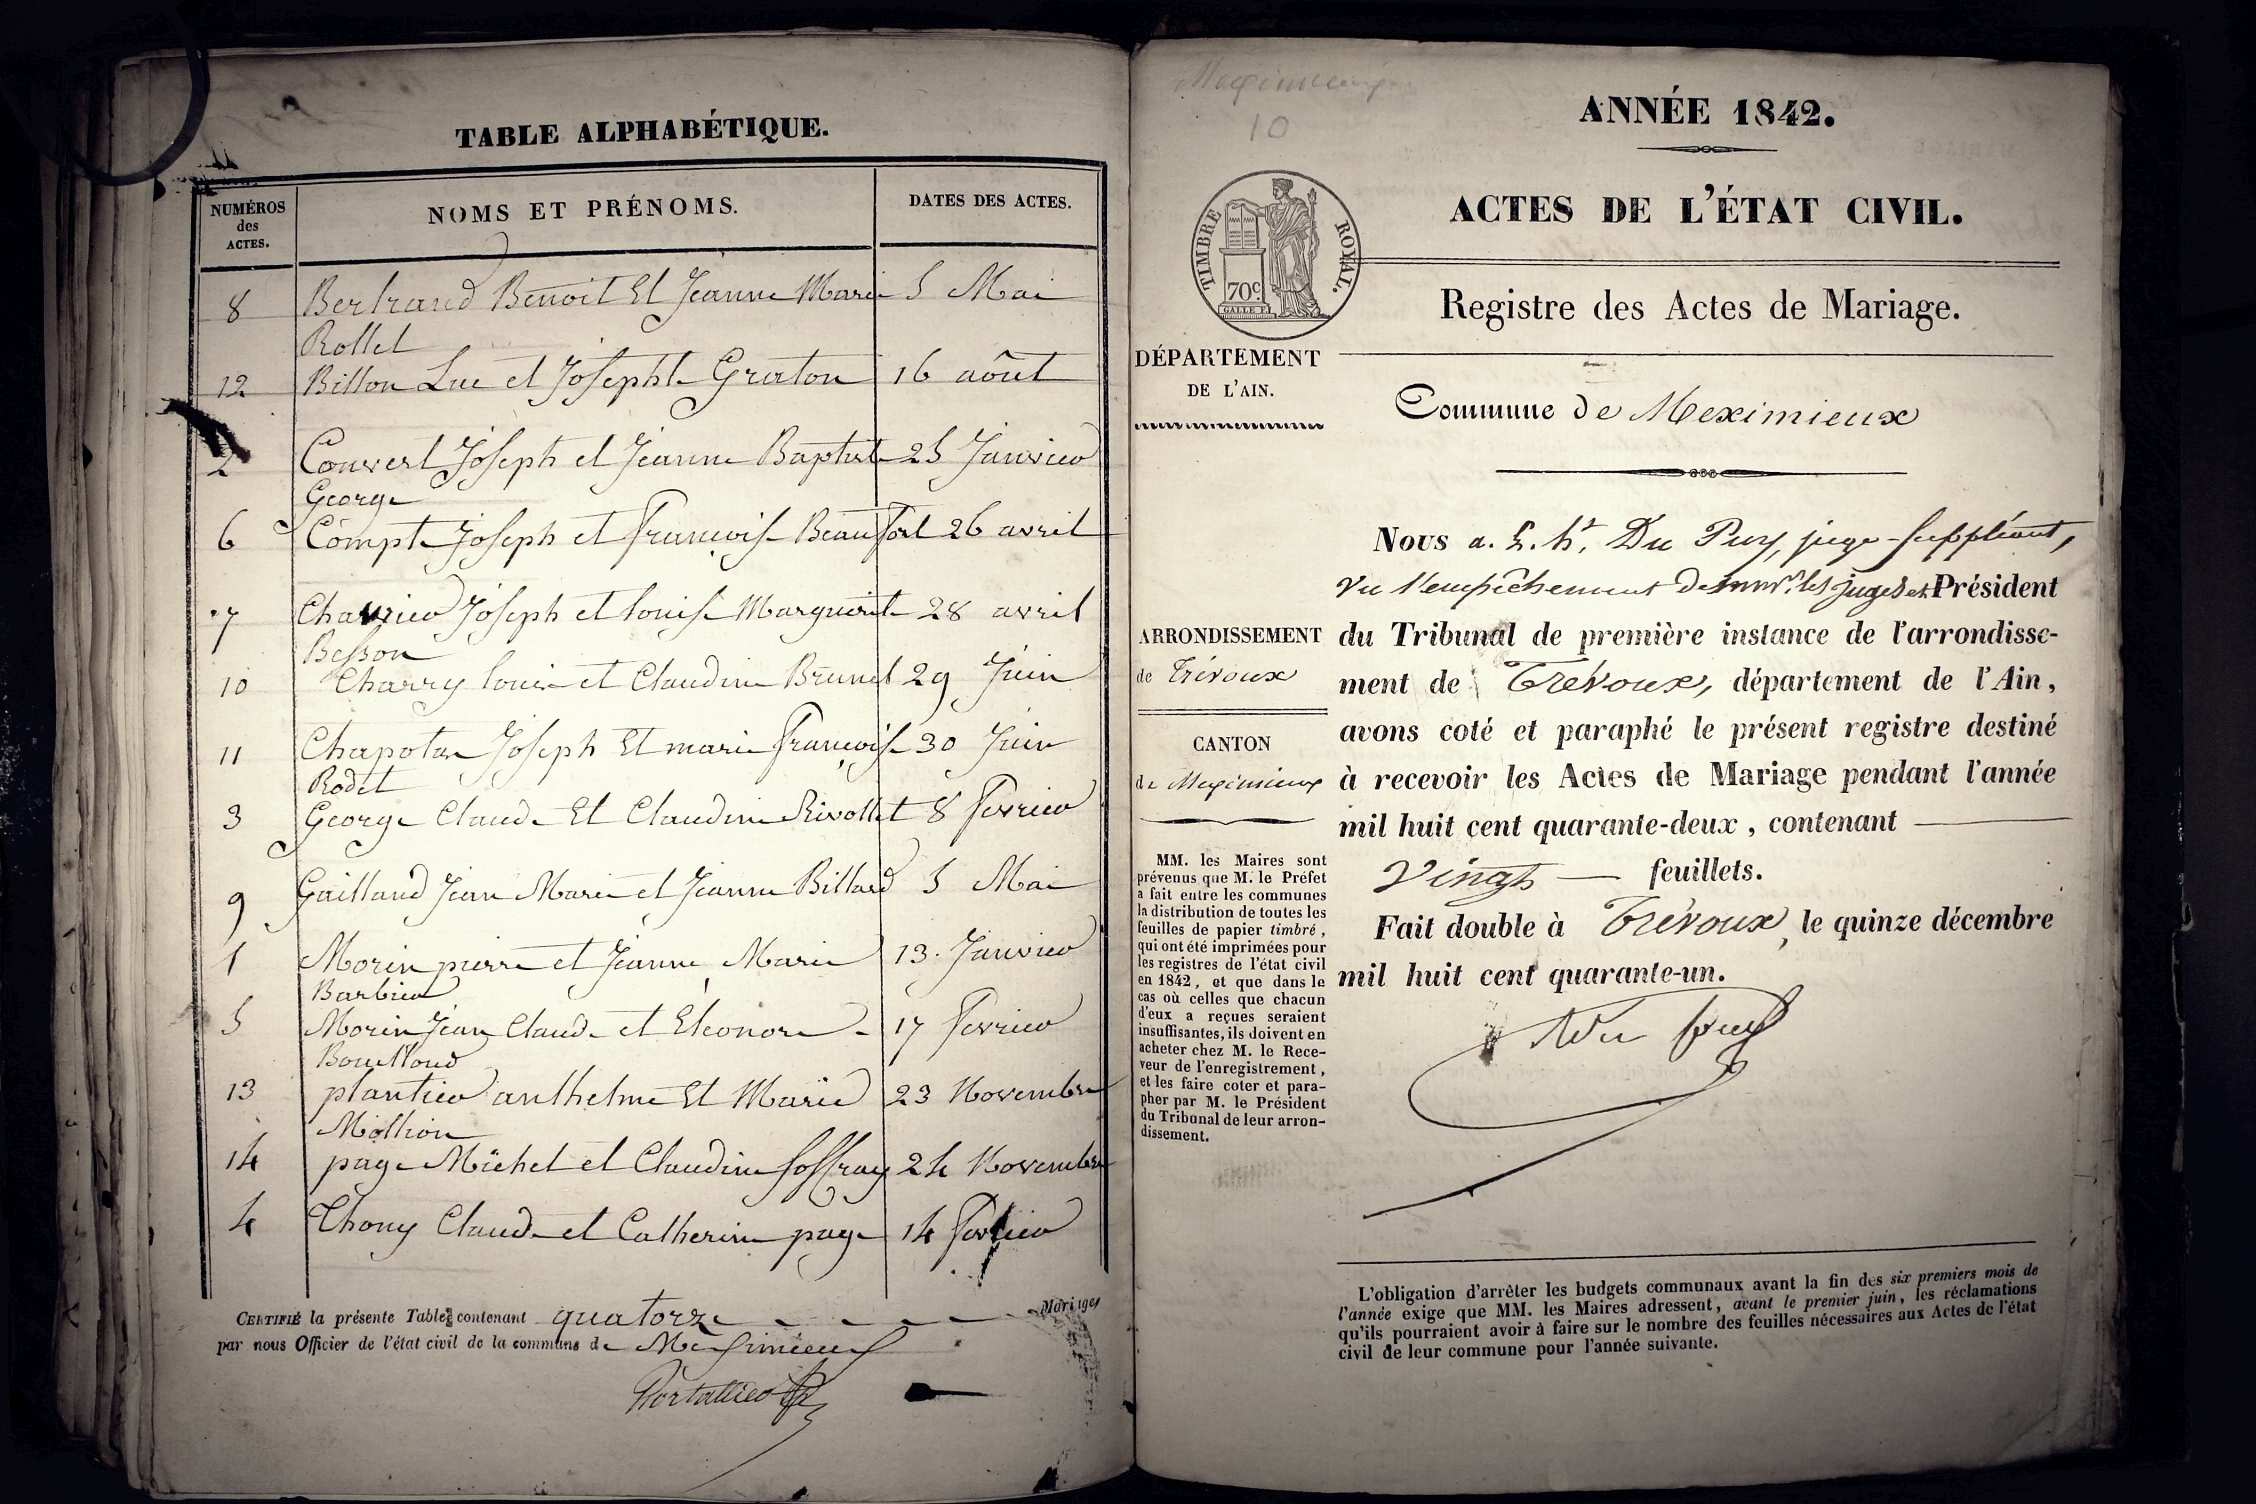 TABLE ALPHABÉTIQUE.
NUMÉROS
des
ACTES.
NOMS ET PRÉNOMS.
DATES DES ACTES.
8 Bertrand Benoit Et Jeanne Marie 5 Mai
Rollet
12 Billon Luc et Josephte Graton 16 août
2 Convert Joseph et Jeanne Baptiste 25 Janvier
George
6 Compte Joseph et françoise Beaufort 26 avril
7 Joseph et louise Marguerite 28 avril
Besson
10 Charry louis et Claudine Brunet 29 Juin
11 Chapotar Joseph Et marie françoise 30 Juin
Rodet
3 George Claude Et Claudine Rivollet 8 fevrier
9 Gaillard Jean Marie et Jeanne Billard 5 Mai
1 Morin pierre et Jeanne Marie 13. Janvier
Barbier
5 Morin Jean Claude et Eleonore 17 fevrier
Bouilloud
13 plantier anthelme Et Marie 23 Novembre
Mollion
14 page Michel et Claudine Soffray 24 Novembre
4 Thony Claude et Catherine page 14 fevrier
CERTIFIÉ la présente Table contenant quatorze Mariages
par nous Officier de l'état civil de la commune de Meximieux
Portallier
10
ANNÉE 1842.
ACTES DE L'ÉTAT CIVIL.
TIMBRE ROYAL.
70c.
Registre des Actes de Mariage.
DÉPARTEMENT
DE L'AIN.
Commune de Meximieux
ARRONDISSEMENT
de Trévoux
CANTON
de Meximieux
MM. les Maires sont
prévenus que M. le Préfet
a fait entre les communes
la distribution de toutes les
feuilles de papier timbré,
qui ont été imprimées pour
les registres de l'état civil
en 1842, et que dans le
cas où celles que chacun
d'eux a reçues seraient
insuffisantes, ils doivent en
acheter chez M. le Rece-
veur de l'enregistrement,
et les faire coter et para-
pher par M. le Président
du Tribunal de leur arron-
dissement.
Nous Du Puy, juge-suppléant,
vu l'empêchement de mm. les juges et Président
du Tribunal de première instance de l'arrondisse-
ment de Trévoux, département de l'Ain,
avons coté et paraphé le présent registre destiné
à recevoir les Actes de Mariage pendant l'année
mil huit cent quarante-deux, contenant
vingt feuillets.
Fait double à Trévoux, le quinze décembre
mil huit cent quarante-un.
Du Puy
L'obligation d'arrêter les budgets communaux avant la fin des six premiers mois de
l'année exige que MM. les Maires adressent, avant le premier juin, les réclamations
qu'ils pourraient avoir à faire sur le nombre des feuilles nécessaires aux Actes de l'état
civil de leur commune pour l'année suivante.